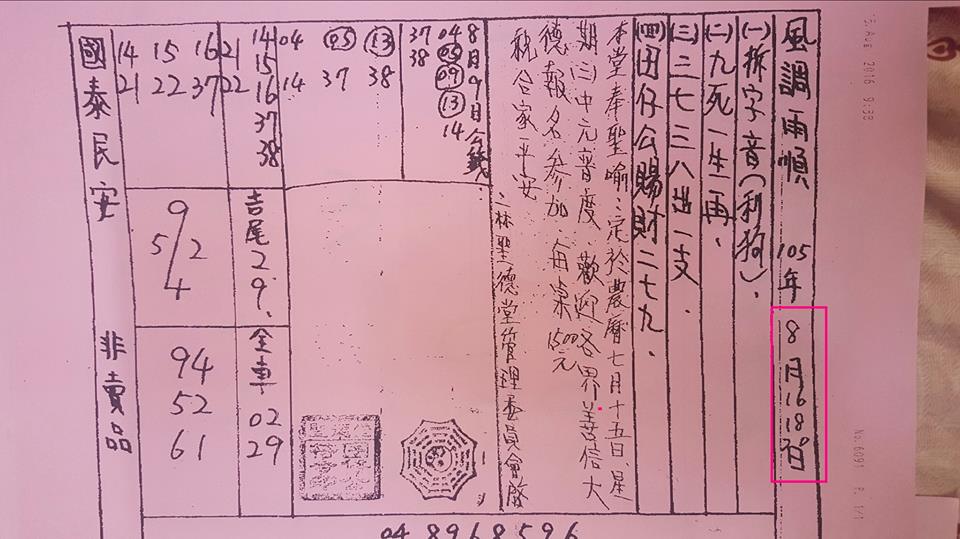 風調雨順 105年 8月16 18日
(一)拆字音(利狗)、
(二)九死一生再、
(三)三七三八出一支、
(四)田仔公賜財二七九、
本堂奉聖喻:定於農曆七月十五日、星
期三中元普度、歡迎各界善信大
德報名參加、每桌1500元
祝合家平安
二林聖德堂管理委員會啟
8月9日今籤
04 05 09 13 14
37 38
13 38
05 37
04 14
14 15 16 37 38
21 22
16 37
15 22
14 21
吉尾29.
全車 02 29
9
5/2
4
94
52
61
國泰民安 非賣品
04 8968596
13 Aug 2016 9:38
No.6091 P. 1/1